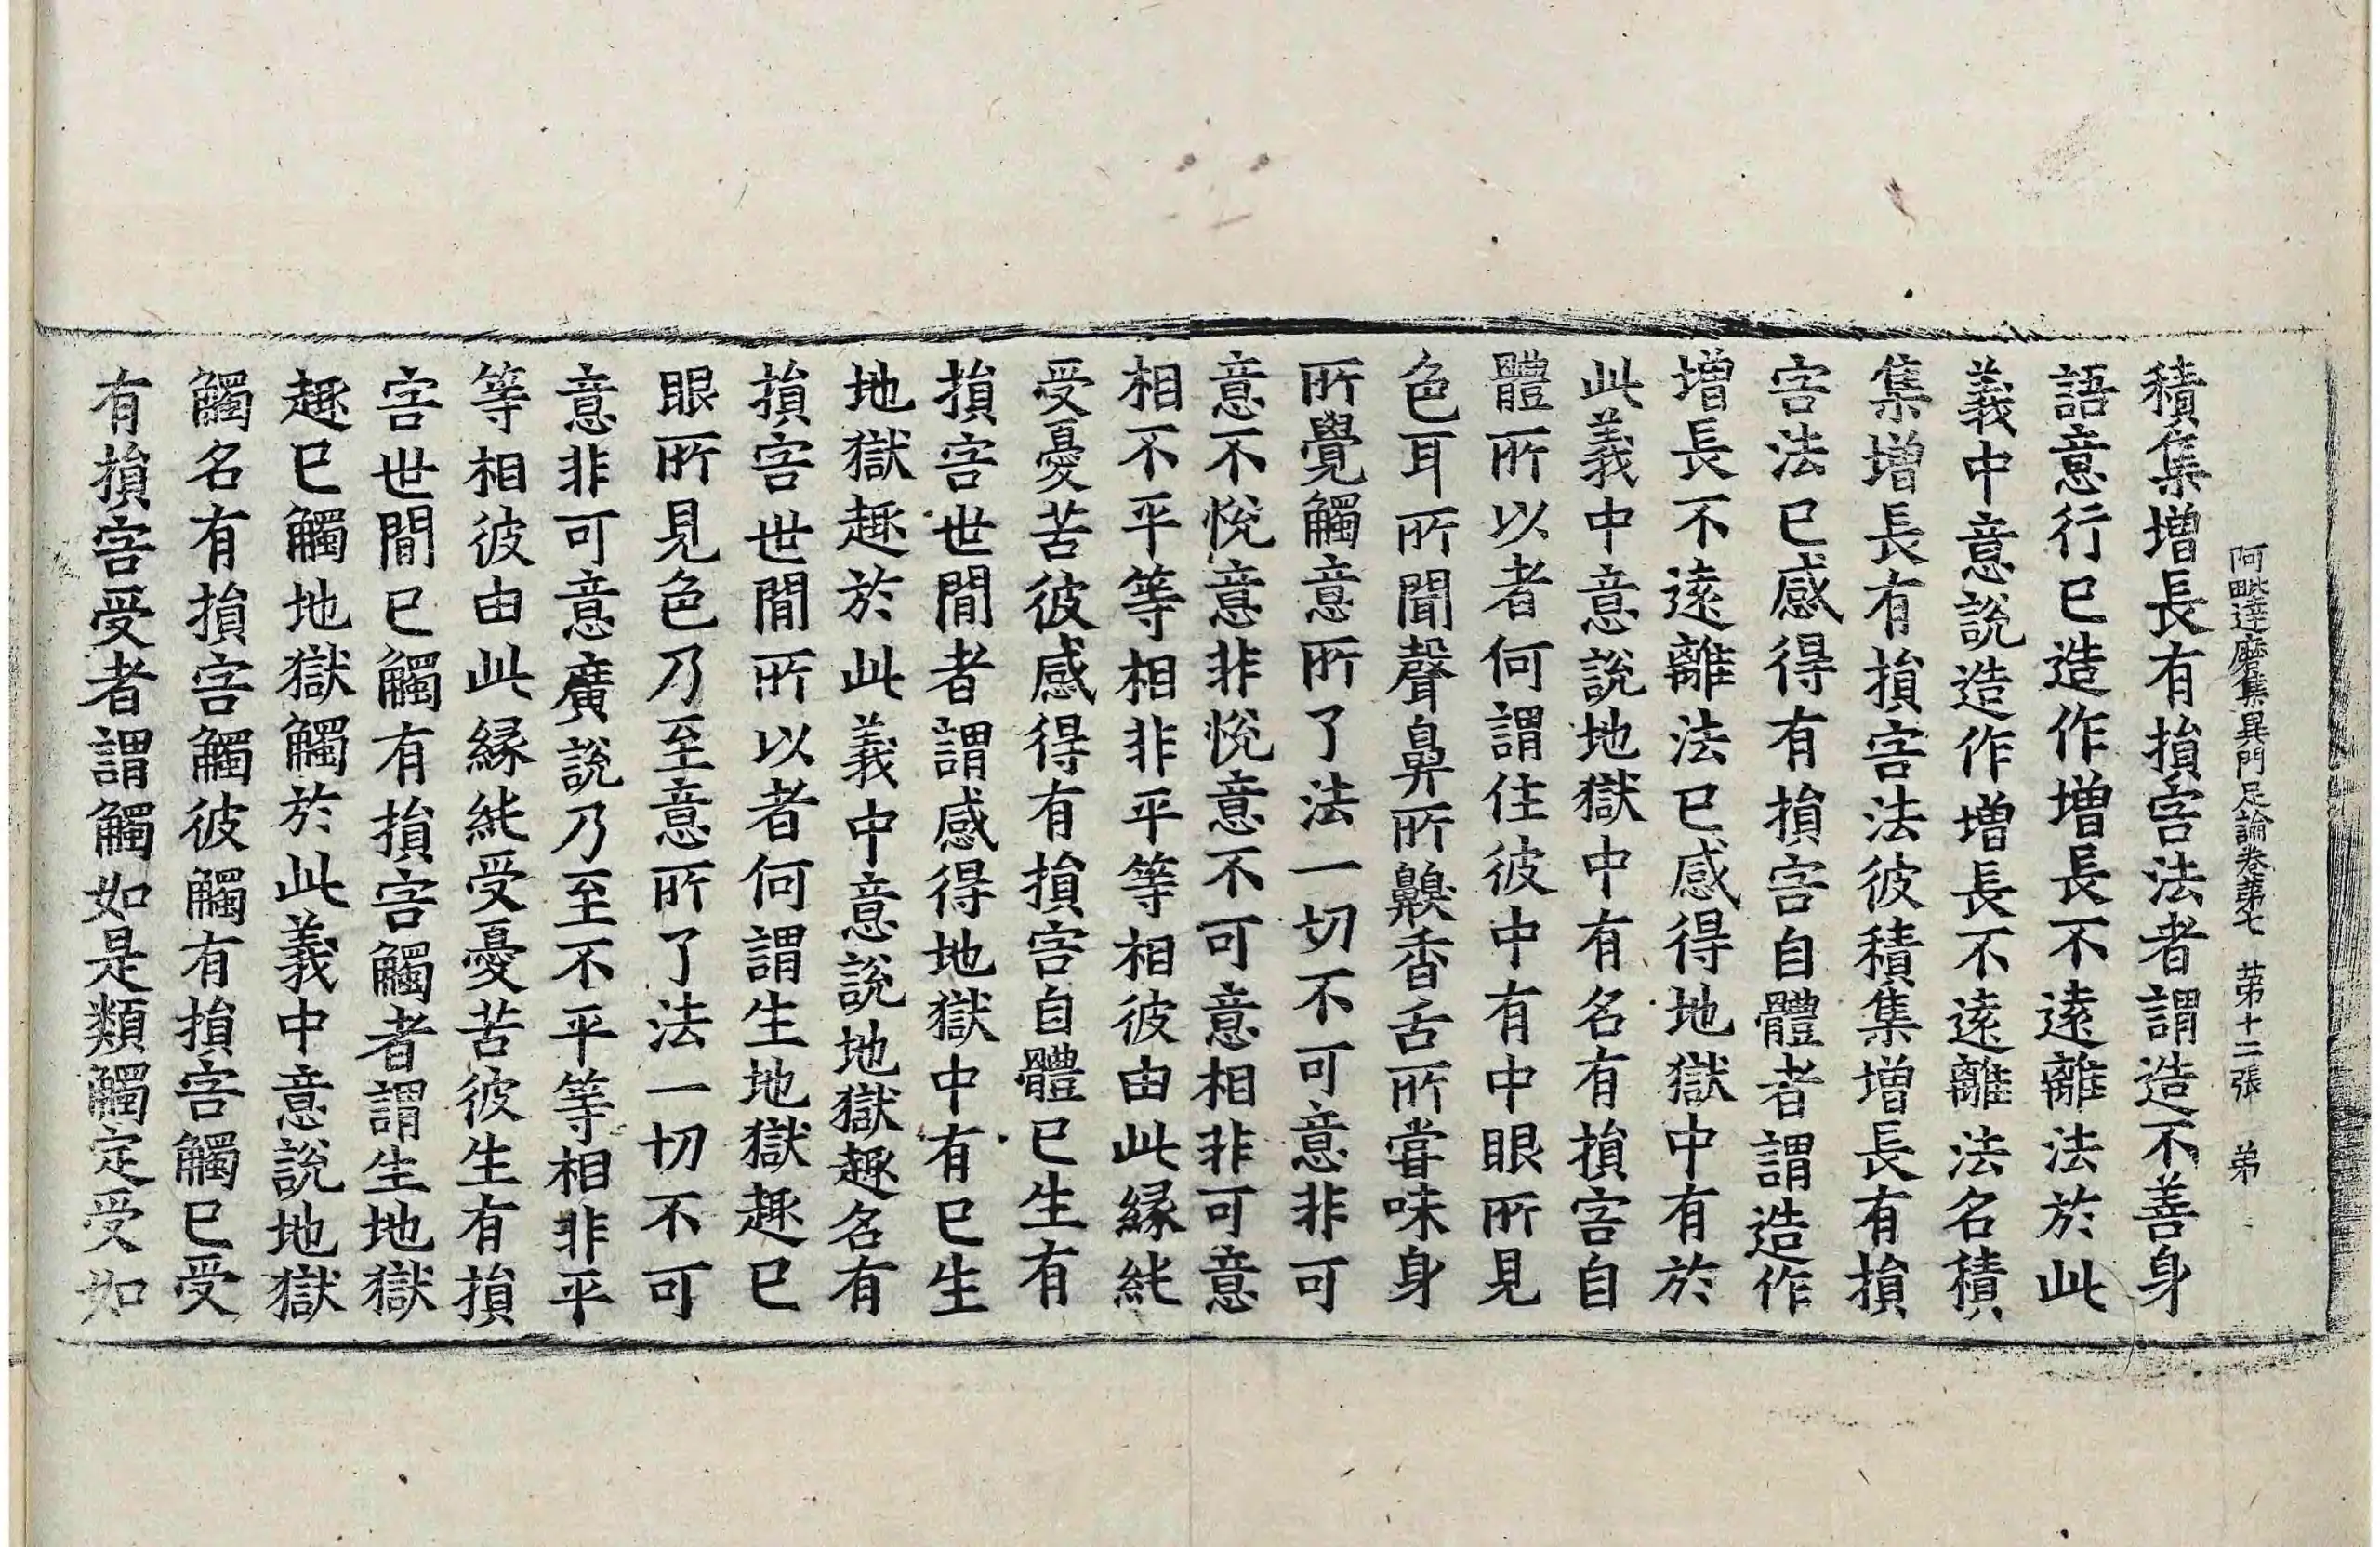 阿毗達磨集異門足論卷第七 第十二張 弟
積集增長有損害法者謂造不善身
語意行已造作增長不遠離法於此
義中意說造作增長不遠離法名積
集增長有損害法彼積集增長有損
害法已感得有損害自體者謂造作
增長不遠離法已感得地獄中有於
此義中意說地獄中有名有損害自
體所以者何謂住彼中有中眼所見
色耳所聞聲鼻所齅香舌所嘗味身
所覺觸意所了法一切不可意非可
意不悅意非悅意不可意相非可意
相不平等相非平等相彼由此緣純
受憂苦彼感得有損害自體已生有
損害世間者謂感得地獄中有已生
地獄趣於此義中意說地獄趣名有
損害世間所以者何謂生地獄趣已
眼所見色乃至意所了法一切不可
意非可意廣說乃至不平等相非平
等相彼由此緣純受憂苦彼生有損
害世間已觸有損害觸者謂生地獄
趣已觸地獄觸於此義中意說地獄
觸名有損害觸彼觸有損害觸已受
有損害受者謂觸如是類觸定受如